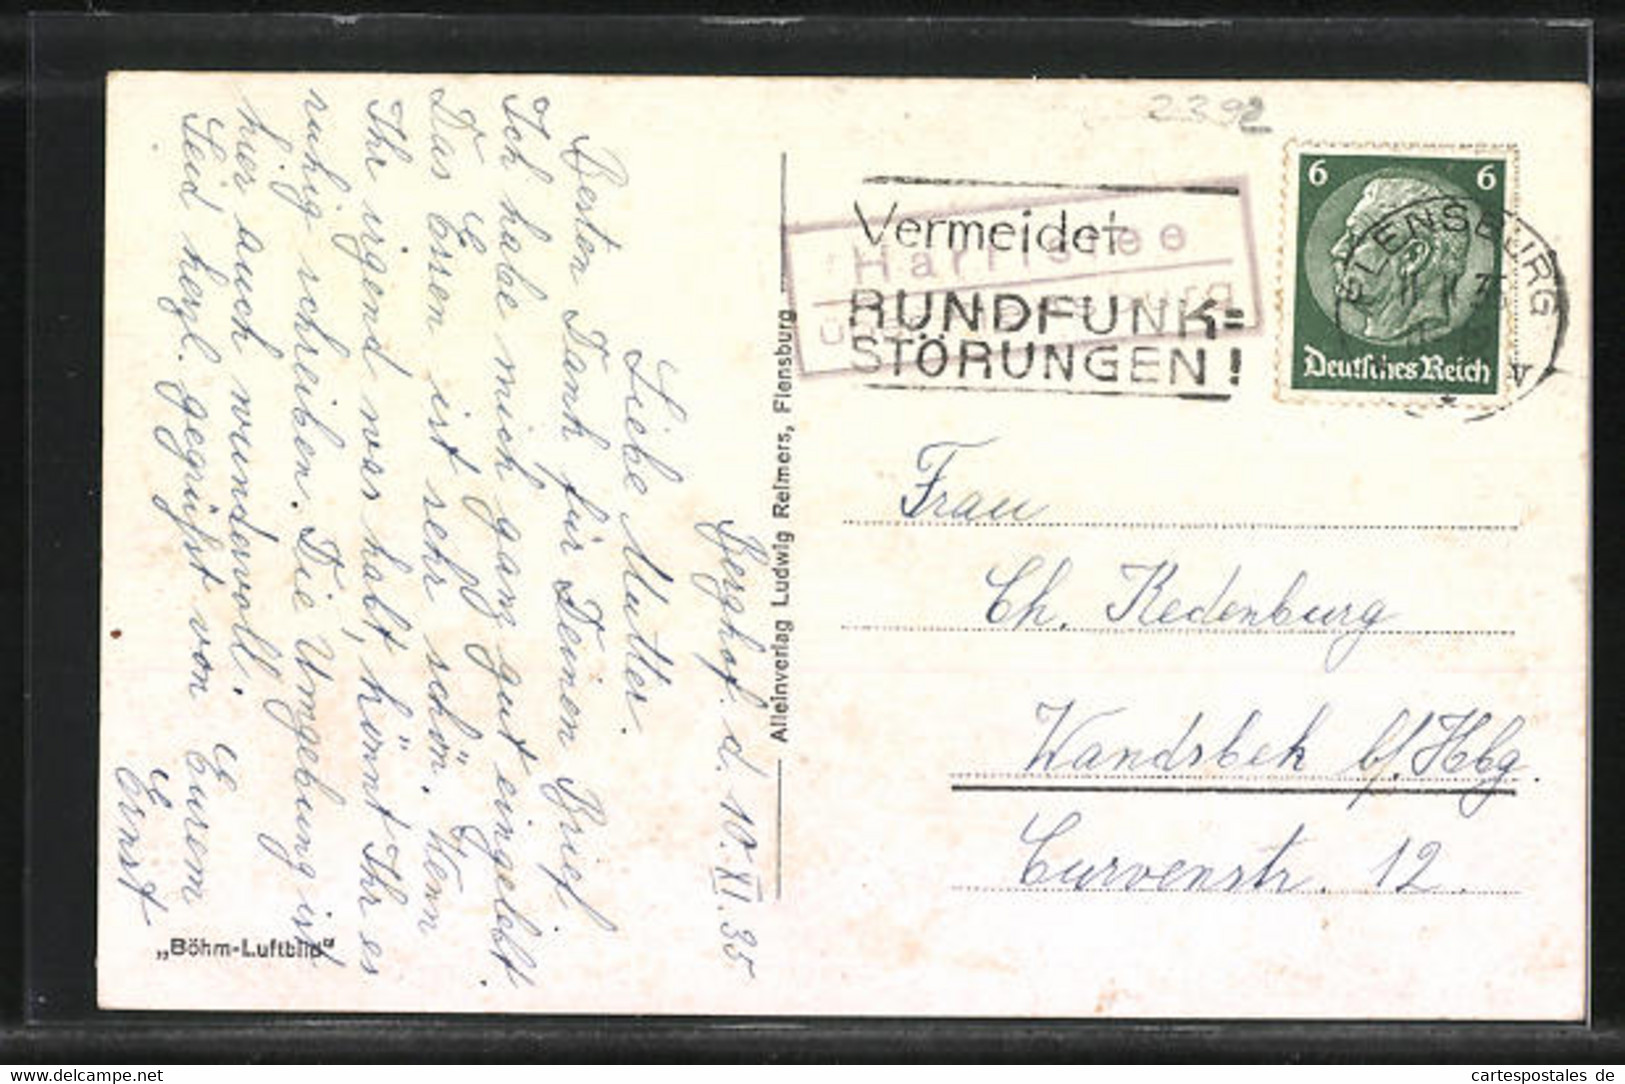 Berghof. d. 10. XI. 35
Liebe Mutter.
Besten Dank für Deinen Brief
Ich habe mich ganz gut eingelebt.
Das Essen ist sehr schön. Wenn
Ihr irgend was habt, könnt Ihr es
ruhig schreiben. Die Umgebung ist
hier auch wundervoll.
Seid herzl. gegrüßt von Eurem
Ernst
„Böhm-Luftbild"
Alleinverlag Ludwig Reimers, Flensburg
2392
Vermeidet
RUNDFUNK=
STÖRUNGEN!
Harrislee
6 6
Deutsches Reich
FLENSBURG
Frau
Ch. Redenburg
Wandsbek b/Hbg.
Curvenstr. 12.
cartespostales de
www.cartespostales.com